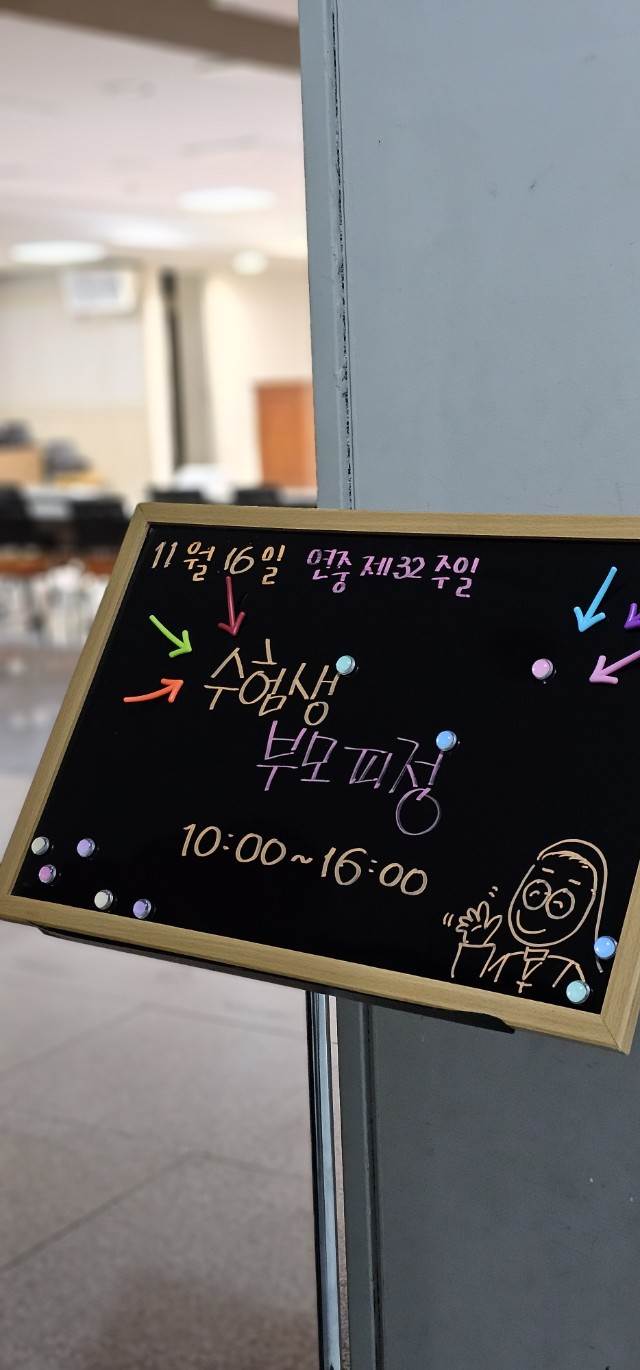 11월 16일 연중 제32주일
수험생
부모피정
10:00~16:00